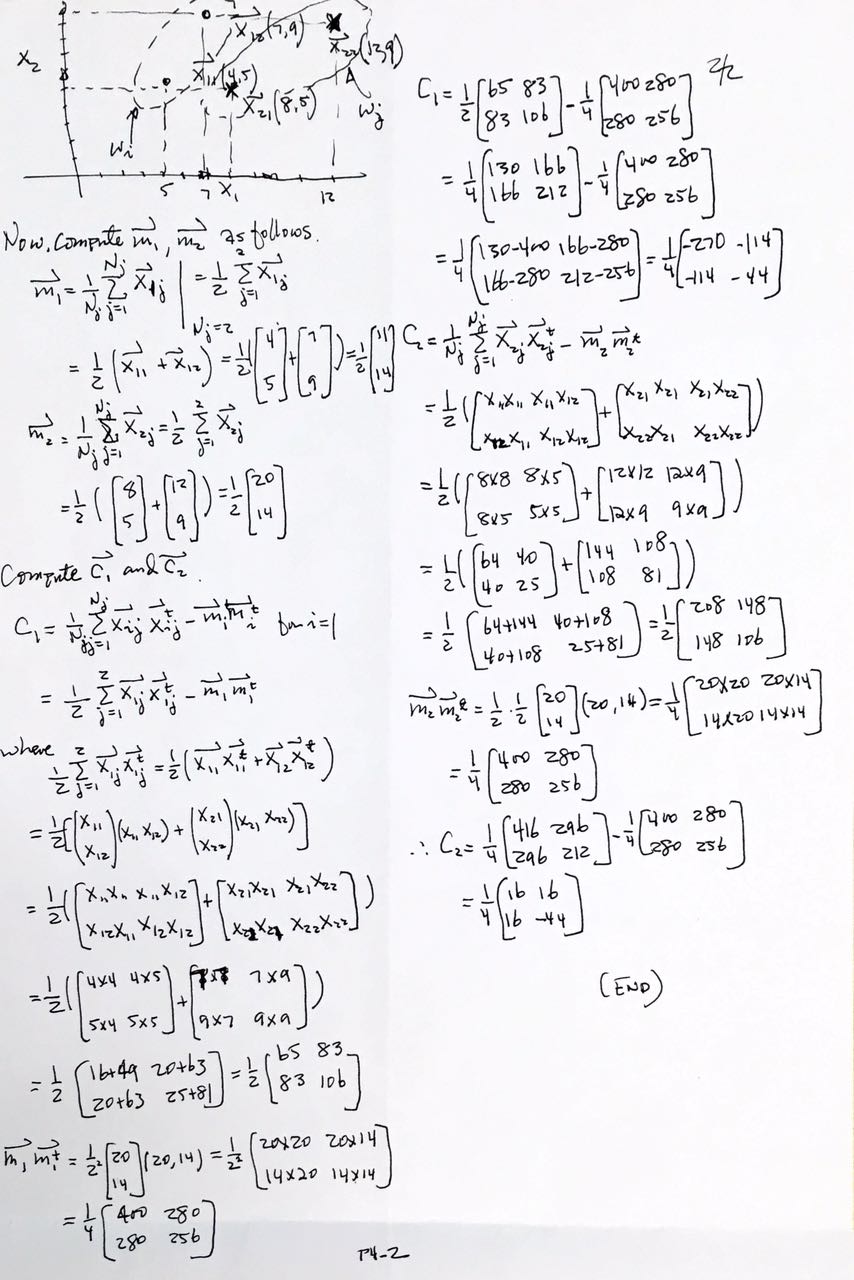 X₂
X⃗₁₂(7,9)
X⃗₂₂(12,9)
X⃗₁₁(4,5)
X⃗₂₁(8,5)
wᵢ
wⱼ
5 7 X₁ 12
Now, Compute m⃗₁, m⃗₂ as follows.
m⃗₁ = 1/Nⱼ Σ_{j=1}^{Nⱼ} X⃗₁ⱼ |_{Nⱼ=2} = 1/2 Σ_{j=1}^{2} X⃗₁ⱼ
= 1/2 (X⃗₁₁ + X⃗₁₂) = 1/2 ([4; 5] + [7; 9]) = 1/2 [11; 14]
m⃗₂ = 1/Nⱼ Σ_{j=1}^{Nⱼ} X⃗₂ⱼ = 1/2 Σ_{j=1}^{2} X⃗₂ⱼ
= 1/2 ([8; 5] + [12; 9]) = 1/2 [20; 14]
Compute C⃗₁ and C⃗₂.
C₁ = 1/Nⱼ Σ_{j=1}^{Nⱼ} X⃗ᵢⱼ X⃗ᵢⱼᵗ − m⃗ᵢ m⃗ᵢᵗ for i=1
= 1/2 Σ_{j=1}^{2} X⃗₁ⱼ X⃗₁ⱼᵗ − m⃗₁ m⃗₁ᵗ
where
1/2 Σ_{j=1}^{2} X⃗₁ⱼ X⃗₁ⱼᵗ = 1/2 (X⃗₁₁ X⃗₁₁ᵗ + X⃗₁₂ X⃗₁₂ᵗ)
= 1/2 [(X₁₁; X₁₂)(X₁₁ X₁₂) + (X₂₁; X₂₂)(X₂₁ X₂₂)]
= 1/2 ([X₁₁X₁₁ X₁₁X₁₂; X₁₂X₁₁ X₁₂X₁₂] + [X₂₁X₂₁ X₂₁X₂₂; X₂₂X₂₁ X₂₂X₂₂])
= 1/2 ([4x4 4x5; 5x4 5x5] + [7x7 7x9; 9x7 9x9])
= 1/2 [16+49 20+63; 20+63 25+81] = 1/2 [65 83; 83 106]
m⃗₁ m⃗₁ᵗ = 1/2² [20; 14] (20, 14) = 1/2² [20x20 20x14; 14x20 14x14]
= 1/4 [400 280; 280 256]
2/2
C₁ = 1/2 [65 83; 83 106] − 1/4 [400 280; 280 256]
= 1/4 [130 166; 166 212] − 1/4 [400 280; 280 256]
= 1/4 [130−400 166−280; 166−280 212−256] = 1/4 [−270 −114; −114 −44]
C₂ = 1/Nⱼ Σ_{j=1}^{Nⱼ} X⃗₂ⱼ X⃗₂ⱼᵗ − m⃗₂ m⃗₂ᵗ
= 1/2 ([X₁₁X₁₁ X₁₁X₁₂; X₁₂X₁₁ X₁₂X₁₂] + [X₂₁X₂₁ X₂₁X₂₂; X₂₂X₂₁ X₂₂X₂₂])
= 1/2 ([8x8 8x5; 8x5 5x5] + [12x12 12x9; 12x9 9x9])
= 1/2 ([64 40; 40 25] + [144 108; 108 81])
= 1/2 [64+144 40+108; 40+108 25+81] = 1/2 [208 148; 148 106]
m⃗₂ m⃗₂ᵗ = 1/2 · 1/2 [20; 14] (20, 14) = 1/4 [20x20 20x14; 14x20 14x14]
= 1/4 [400 280; 280 256]
∴ C₂ = 1/4 [416 296; 296 212] − 1/4 [400 280; 280 256]
= 1/4 [16 16; 16 −44]
(END)
P4-2